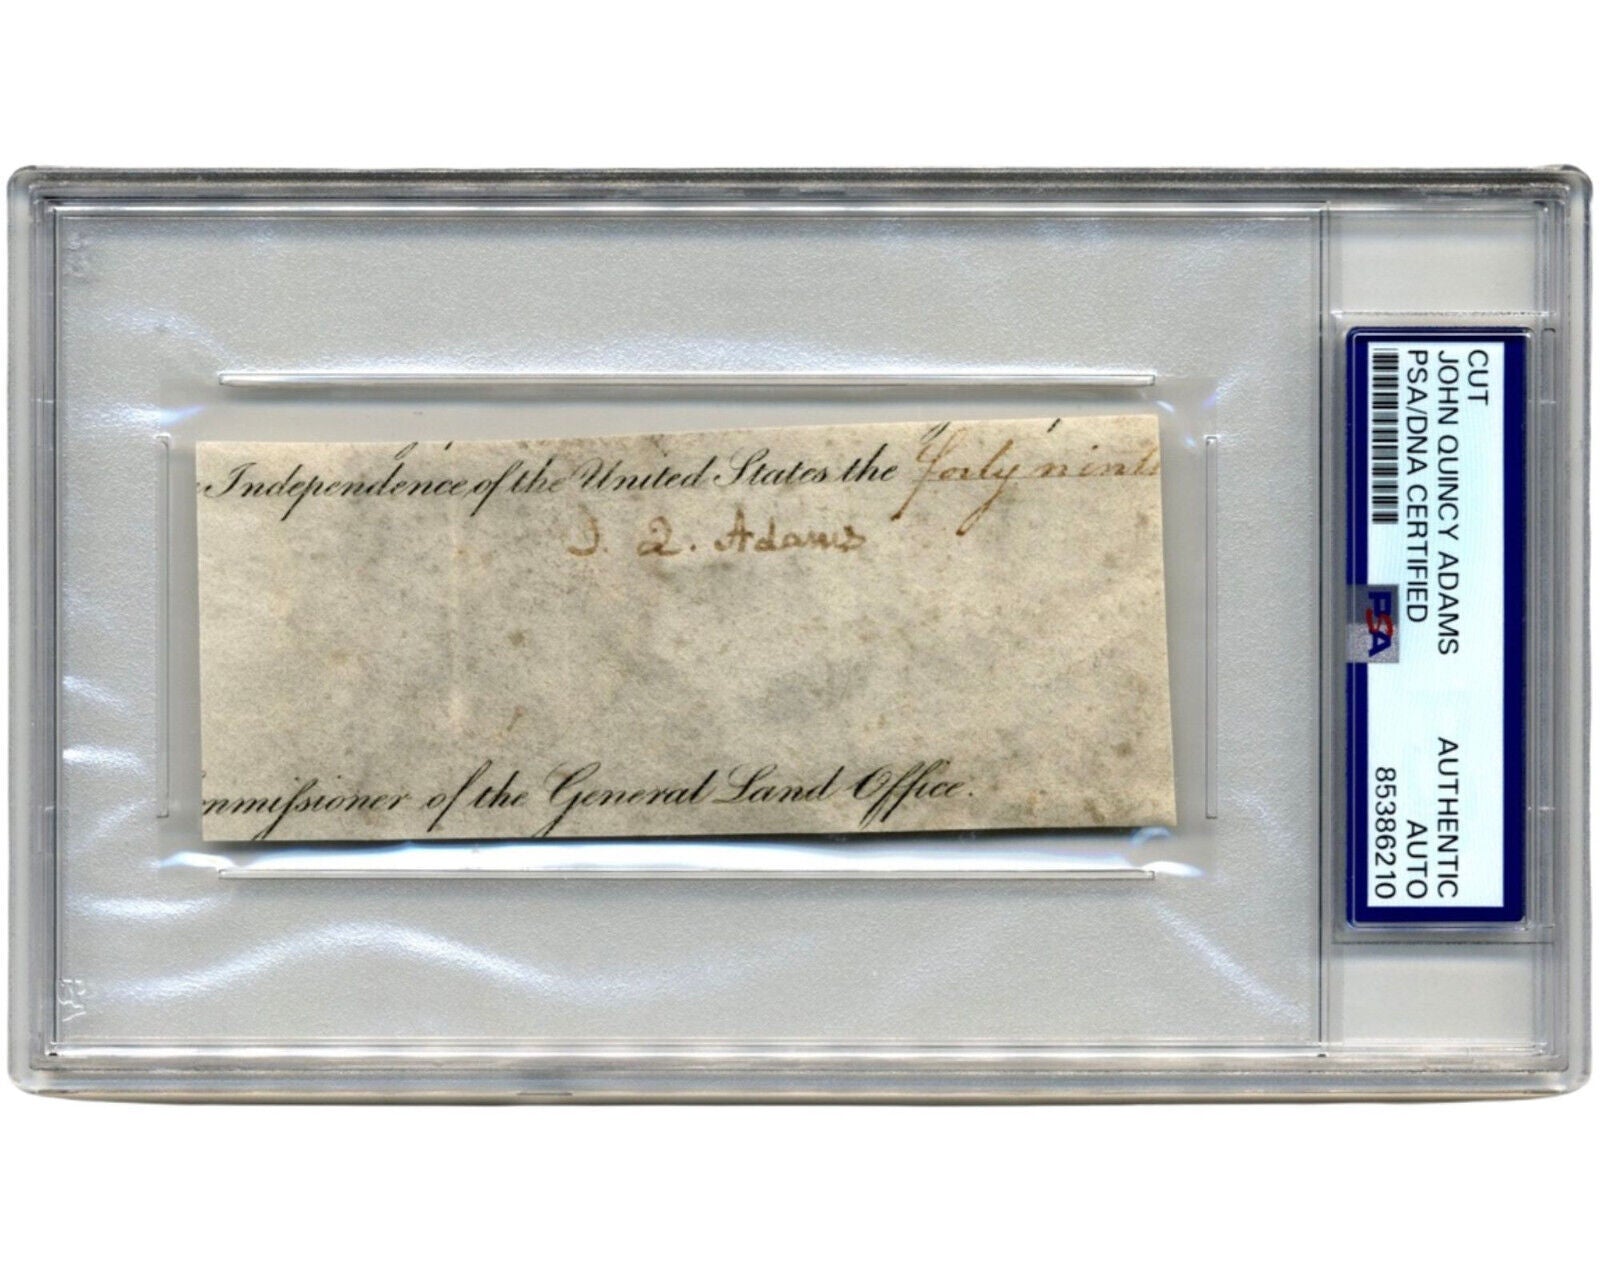 Independence of the United States the forty ninth
J. Q. Adams
ommiſsioner of the General Land Office.
CUT
JOHN QUINCY ADAMS AUTHENTIC
PSA/DNA CERTIFIED AUTO
85386210
PSA